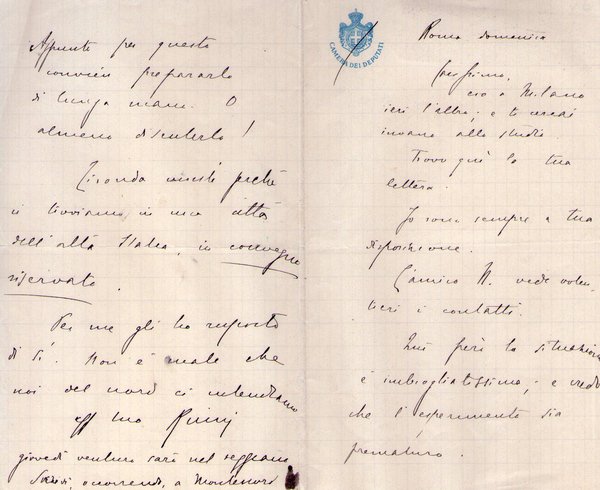 CAMERA DEI DEPUTATI
Roma domenica
Carissimo,
ero a Milano
ieri l'altro; e te cercai
invano allo studio.
Trovo qui la tua
lettera.
Io sono sempre a tua
disposizione.
L'amico N. vede volen-
tieri i contatti.
Qui però la situazione
è imbrogliatissima; e credo
che l'esperimento sia
prematuro.
Appunto per questo
convien prepararlo
di lunga mano. O
almeno discuterlo!
insiste perché
ci troviamo in una città
dell'alta Italia, in convegno
riservato.
Per me gli ho risposto
di sì. Non è male che
noi del nord ci intendiamo
aff tuo
giovedì venturo sarò nel reggiano
occorrendo, a